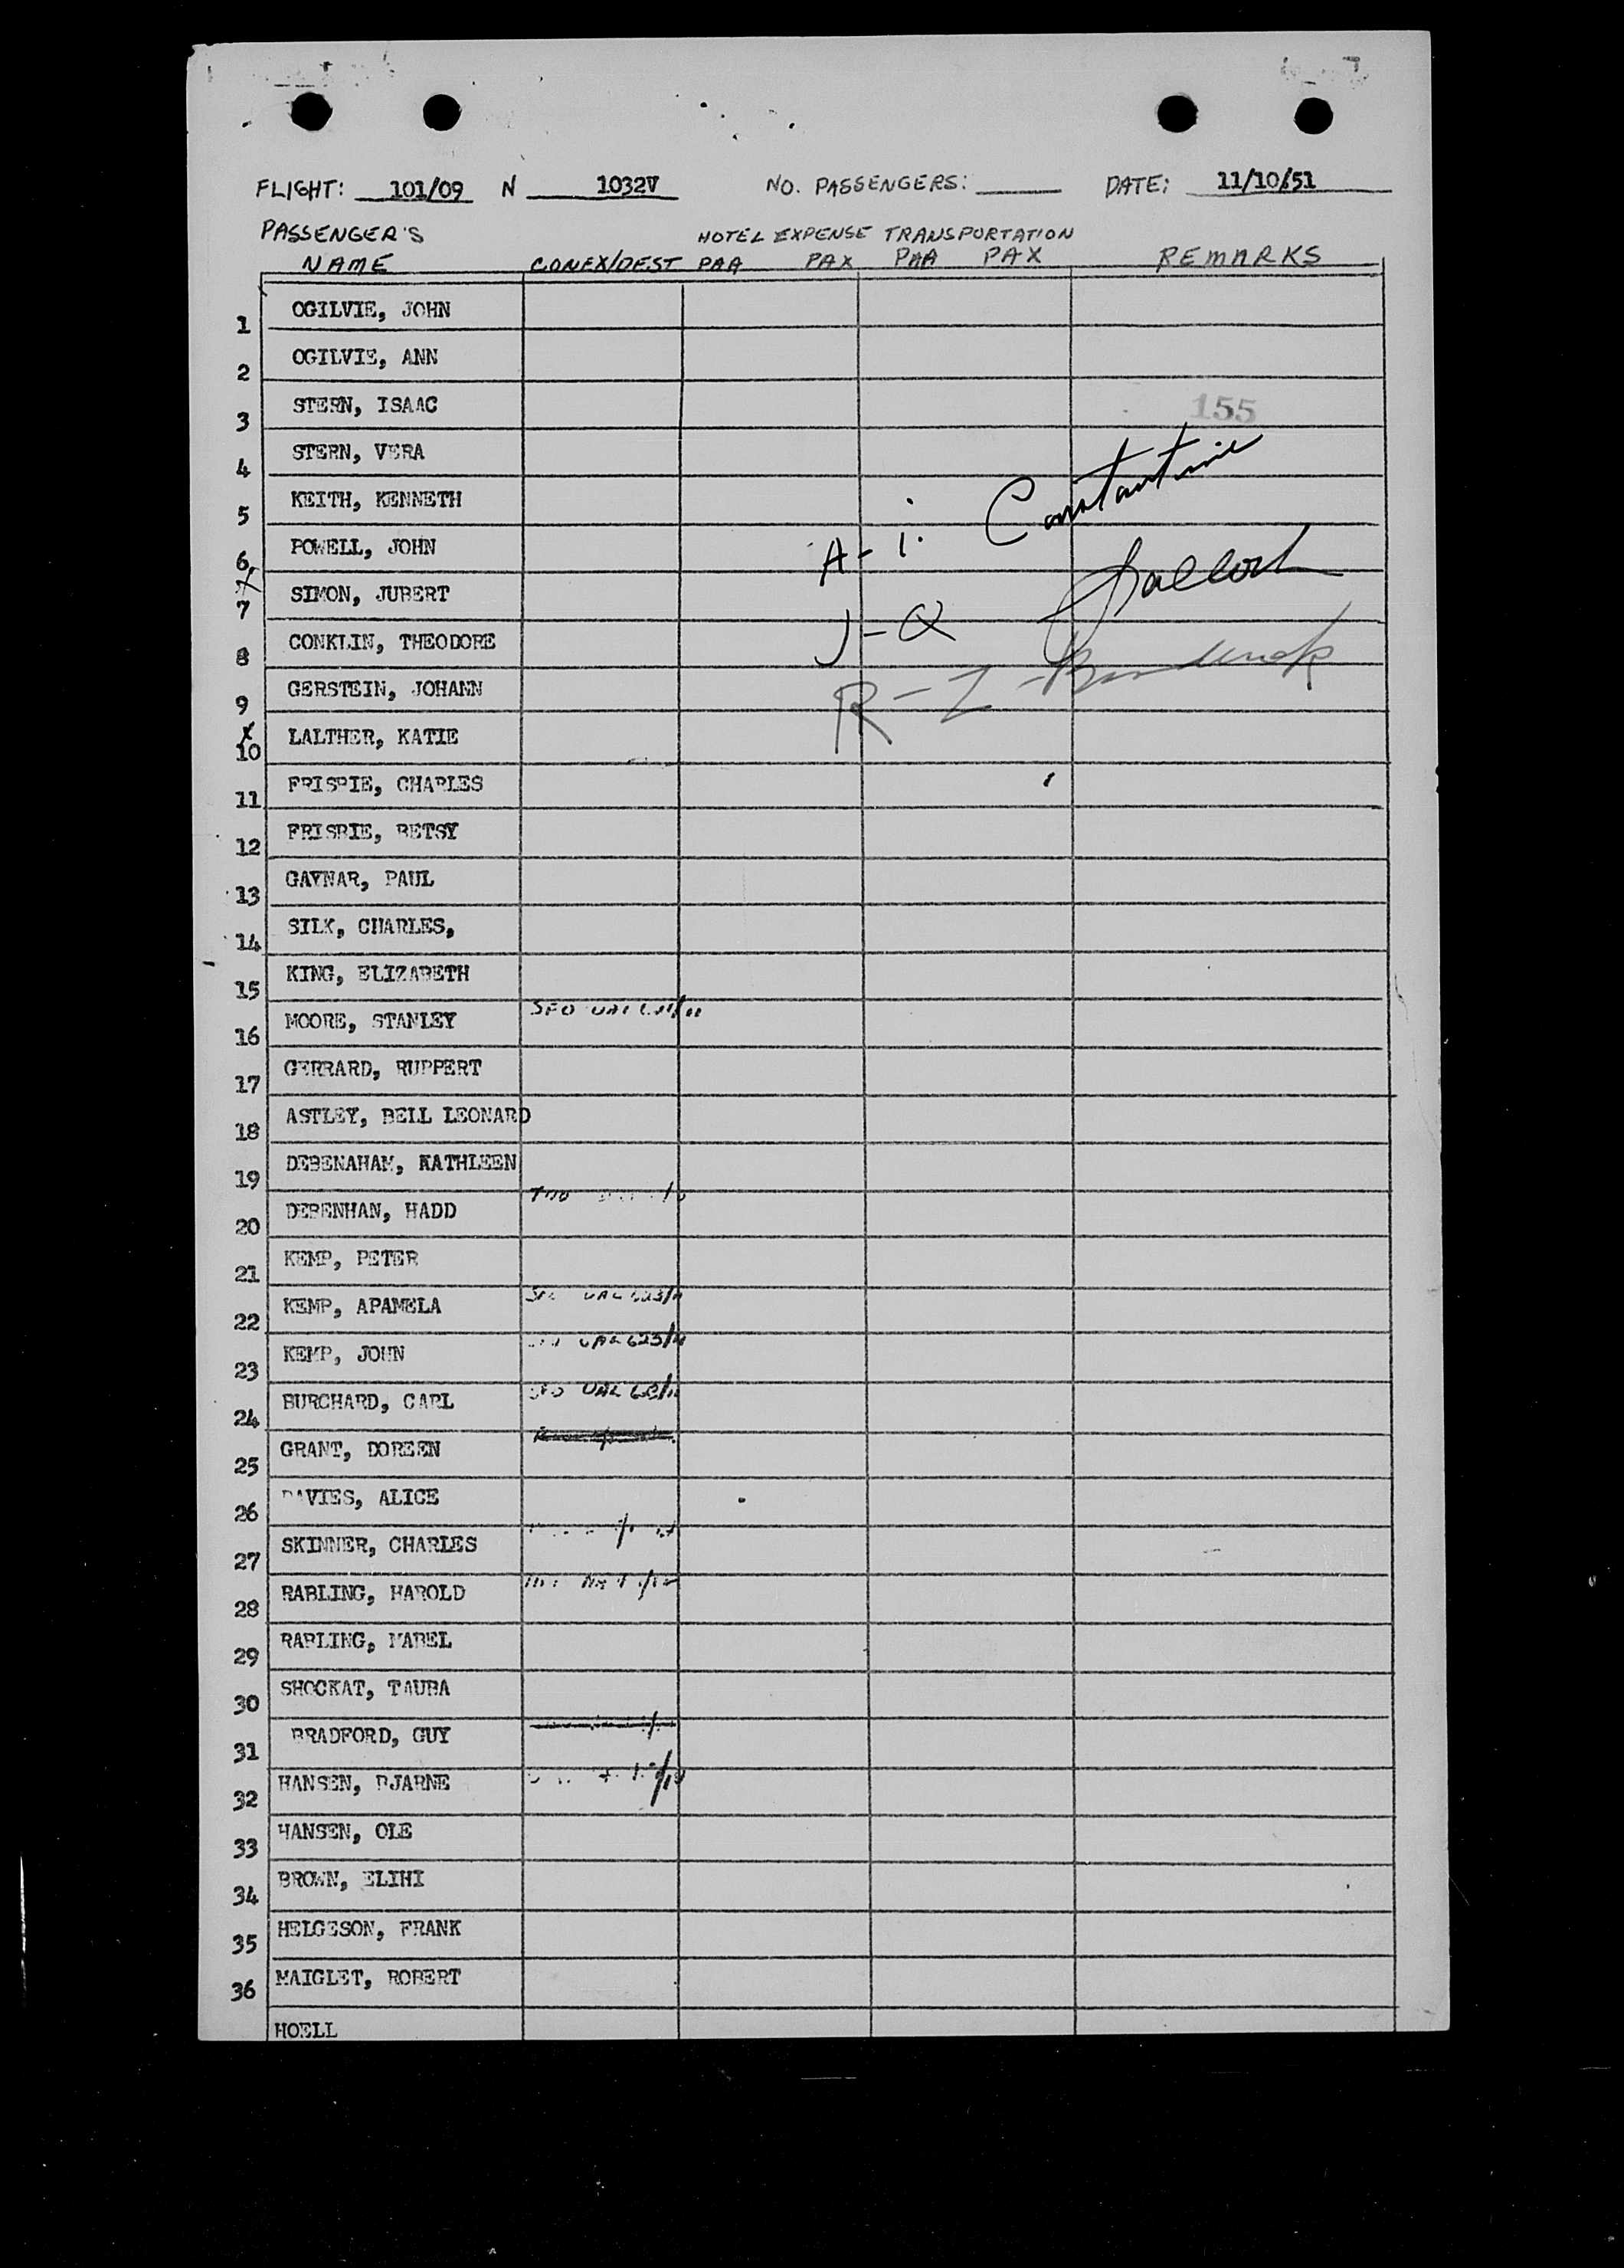 FLIGHT: 101/09 N 1032V NO. PASSENGERS: DATE: 11/10/51
PASSENGER'S HOTEL EXPENSE TRANSPORTATION
NAME CONEX/DEST PAA PAX PAA PAX REMARKS
1 OGILVIE, JOHN
2 OGILVIE, ANN
3 STERN, ISAAC 155
4 STERN, VERA
5 KEITH, KENNETH
A - i. Constantine
6 POWELL, JOHN
7 SIMON, JUBERT
J - Q
8 CONKLIN, THEODORE
R - Z -
9 GERSTEIN, JOHANN
x
10 LALTHER, KATIE
11 FRISBIE, CHARLES
12 FRISBIE, BETSY
13 GAYNAR, PAUL
14 SILK, CHARLES,
15 KING, ELIZABETH
16 MOORE, STANLEY SFO UAL
17 GERRARD, RUPPERT
18 ASTLEY, BELL LEONARD
19 DEBENAHAM, KATHLEEN
20 DEBENHAN, HADD
21 KEMP, PETER
22 KEMP, APAMELA UAL 623/11
23 KEMP, JOHN UAL 623/11
24 BURCHARD, CARL SFO UAL
25 GRANT, DOREEN
26 DAVIES, ALICE
27 SKINNER, CHARLES
28 RABLING, HAROLD
29 RABLING, MABEL
30 SHOCKAT, TAUBA
31 BRADFORD, GUY
32 HANSEN, BJARNE
33 HANSEN, OLE
34 BROWN, ELIHI
35 HELGESON, FRANK
36 MAIGLET, ROBERT
HOELL